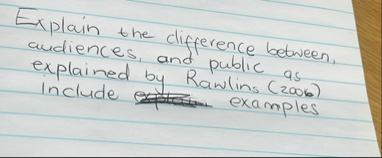 Explain the difference between,
audiences, and public as
explained by Rawlins (2006)
include examples